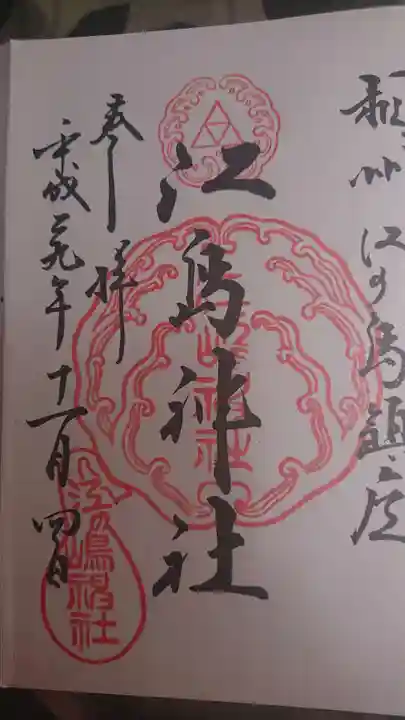 相州江の島鎮座
江島神社
奉拝
平成二九年十一月四日
江嶋神社
江嶋神社